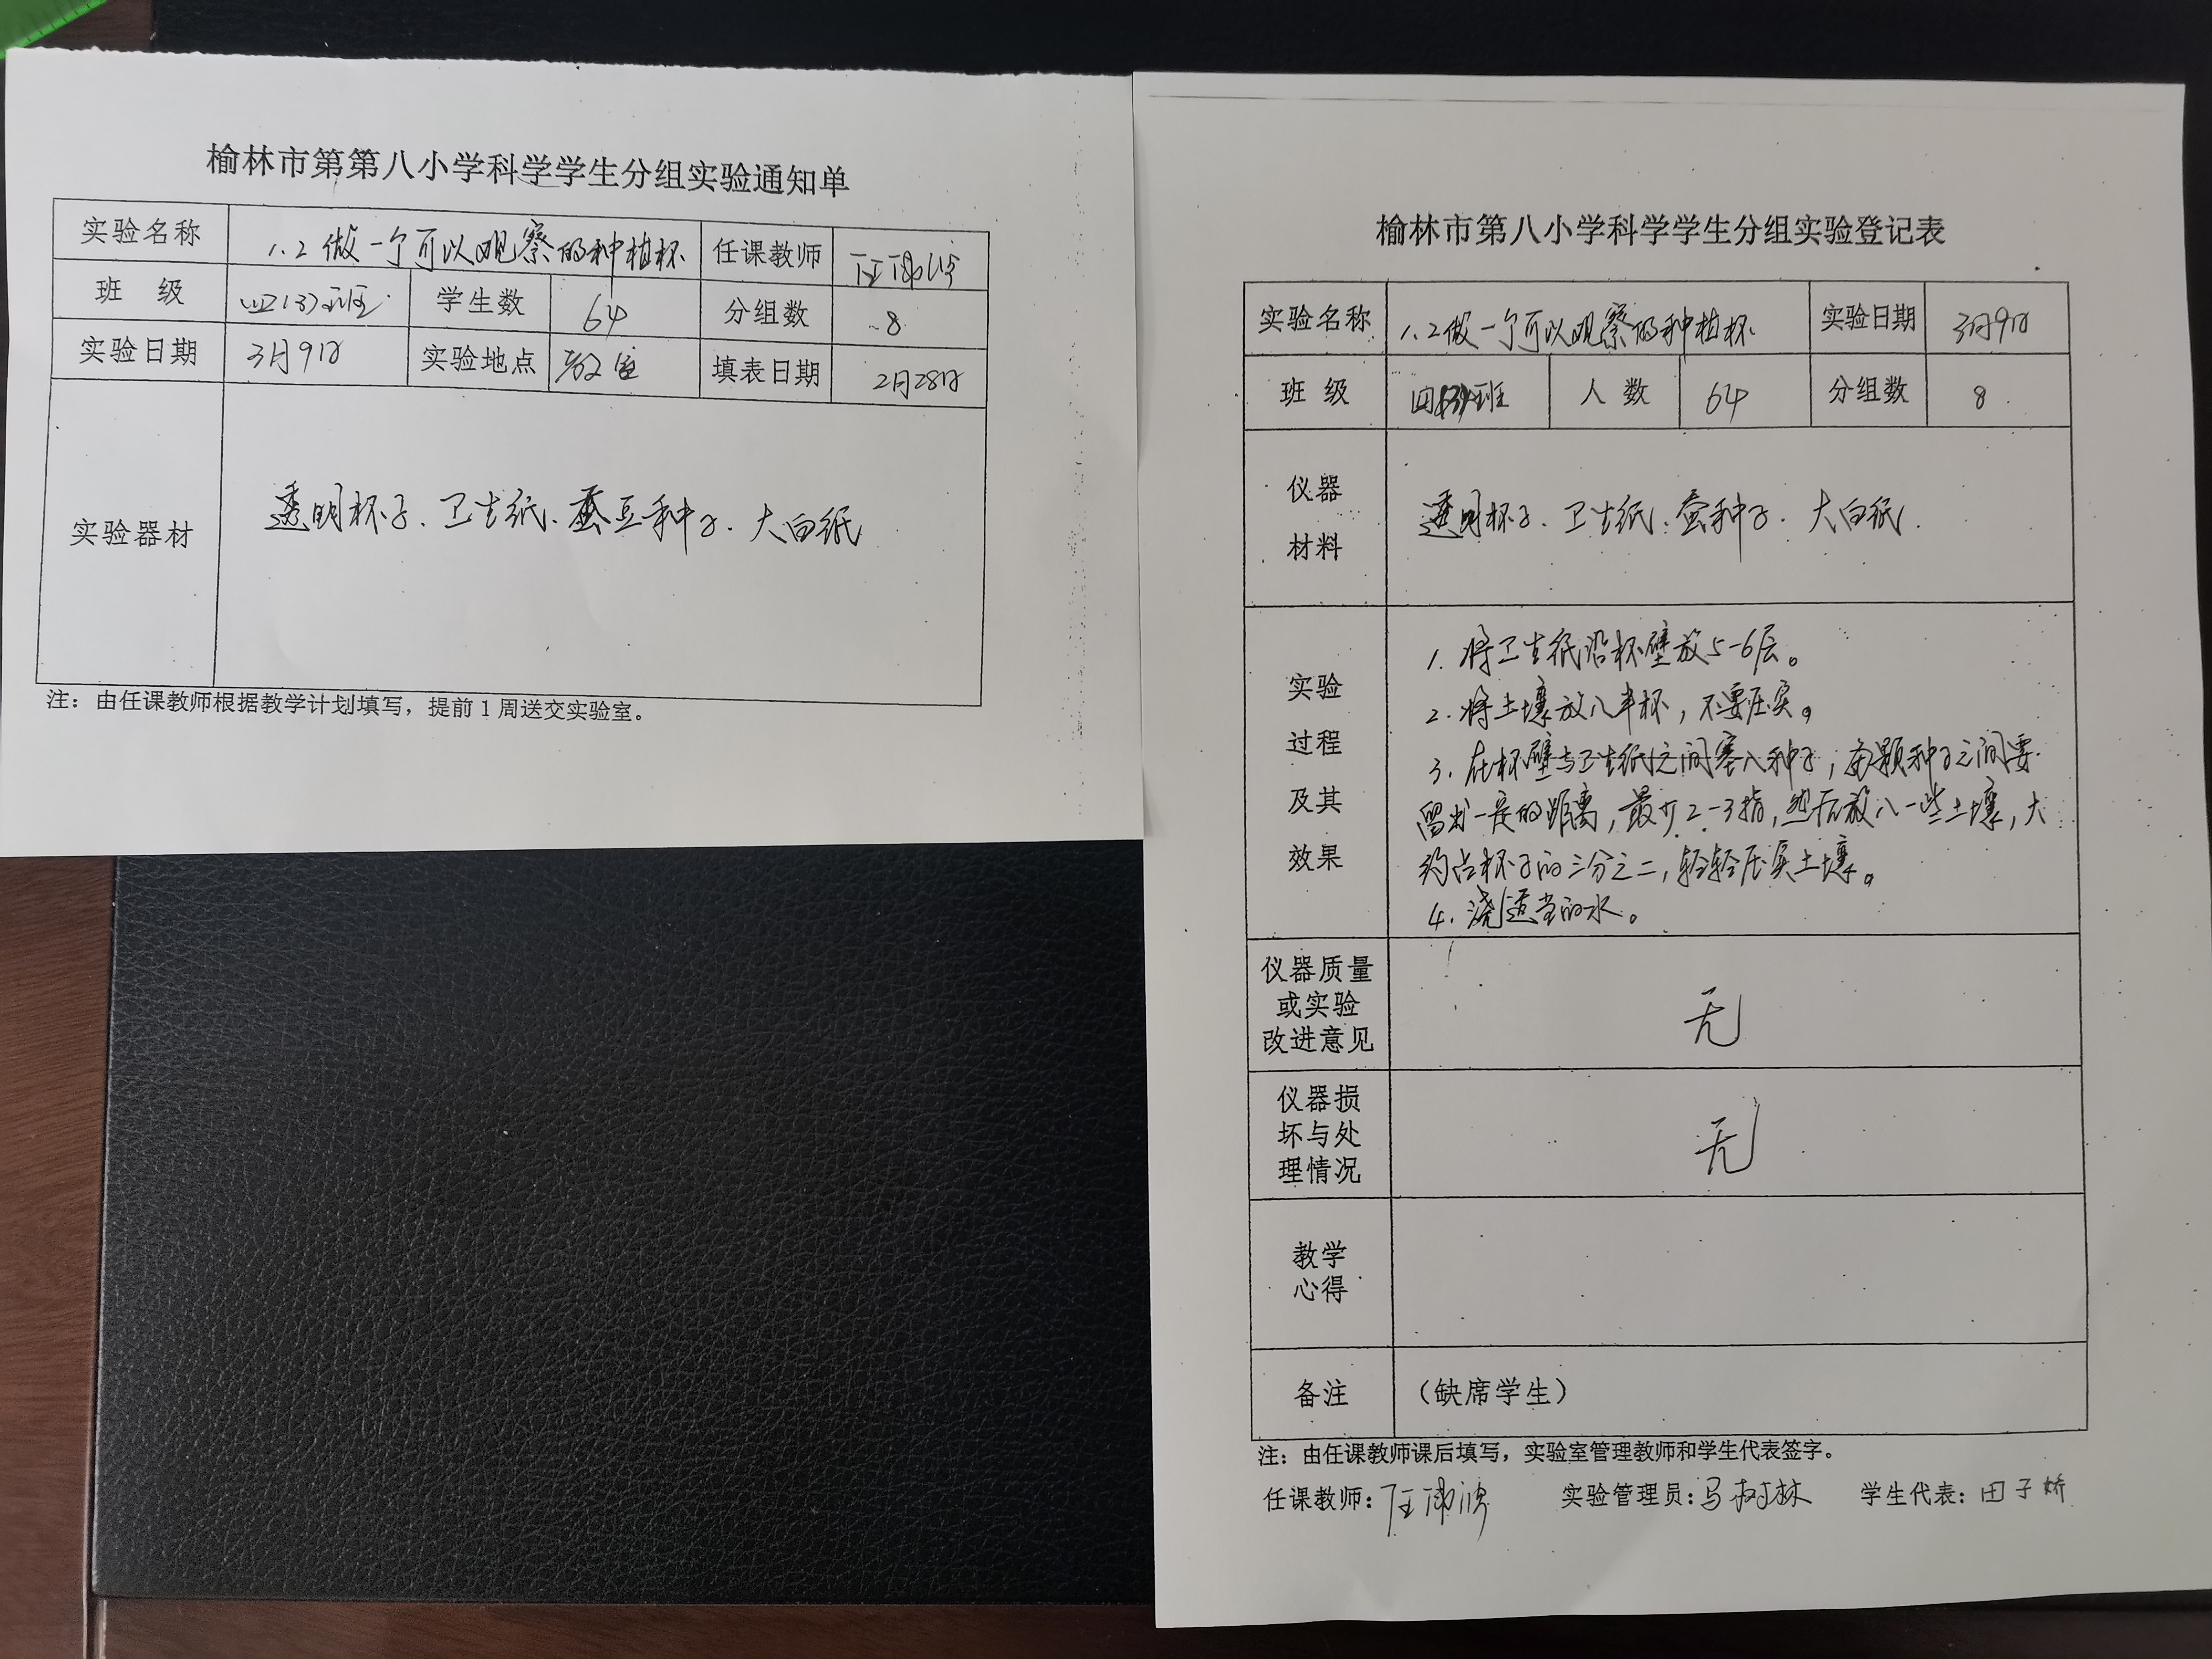 榆林市第第八小学科学学生分组实验通知单
实验名称 1.2做一个可以观察的种植杯 任课教师
班 级 四(3)班 学生数 64 分组数 8
实验日期 3月9日 实验地点 教室 填表日期 2月28日
实验器材 透明杯子、卫生纸、蚕豆种子、大白纸
注：由任课教师根据教学计划填写，提前1周送交实验室。
榆林市第八小学科学学生分组实验登记表
实验名称 1.2做一个可以观察的种植杯 实验日期 3月9日
班 级 四(3)班 人 数 64 分组数 8
仪器
材料
透明杯子、卫生纸、蚕种子、大白纸.
实验
过程
及其
效果
1. 将卫生纸沿杯壁放5-6层。
2. 将土壤放入半杯，不要压实。
3. 在杯壁与卫生纸之间塞入种子；每颗种子之间要
留出一定的距离，最少2-3指，然后放入一些土壤，大
约占杯子的三分之二，轻轻压实土壤。
4. 浇适当的水。
仪器质量
或实验
改进意见
无
仪器损
坏与处
理情况
无
教学
心得
备注 （缺席学生）
注：由任课教师课后填写，实验室管理教师和学生代表签字。
任课教师： 实验管理员：马树林 学生代表：田子娇